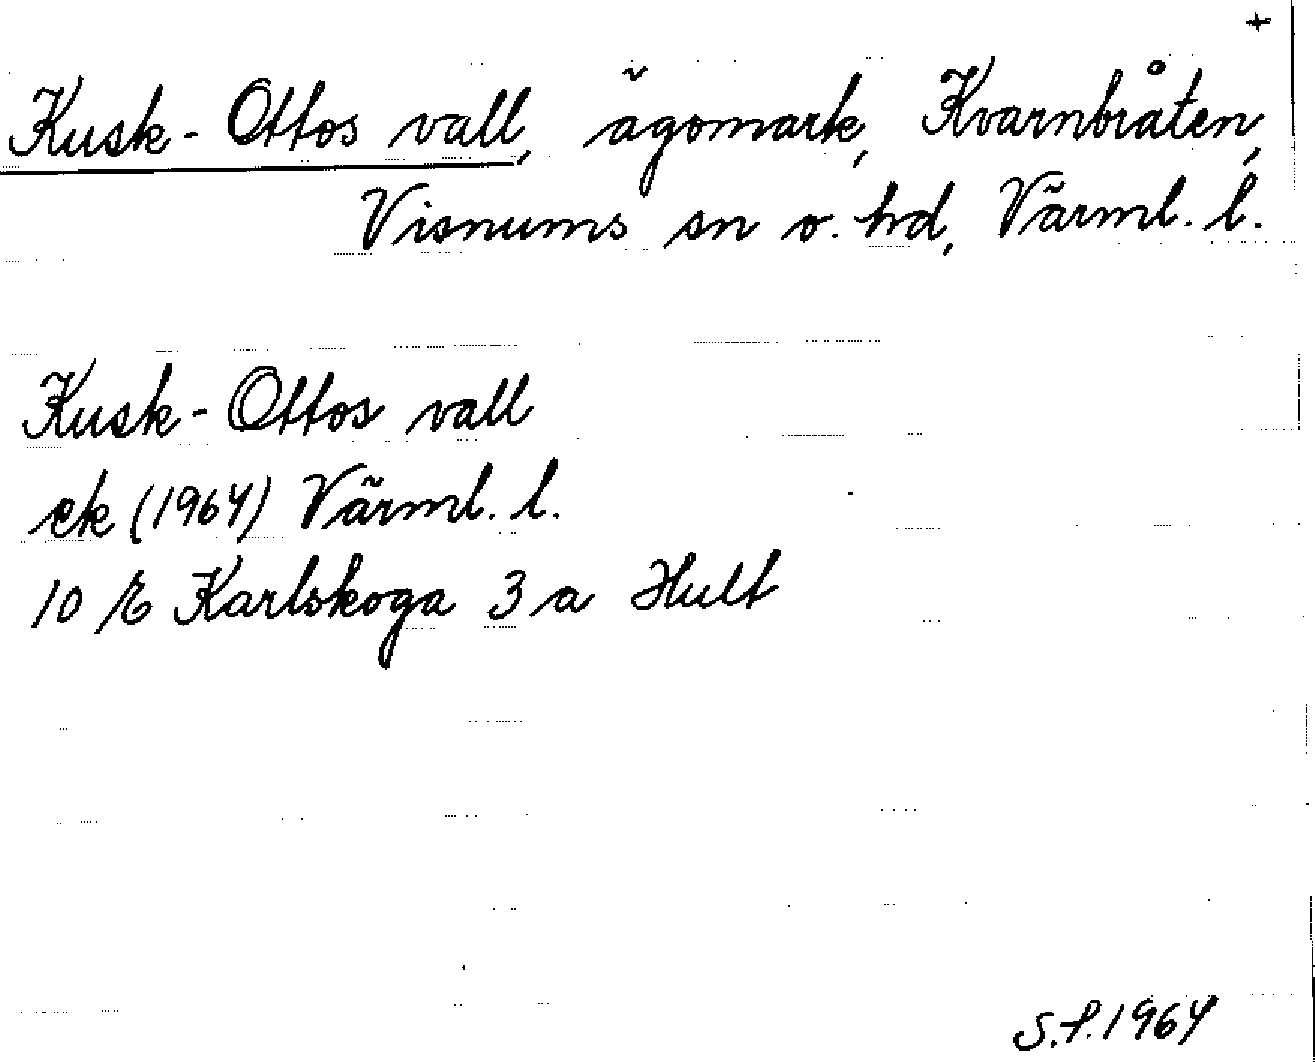 +
Kusk-Ottos vall, ägomark, Kvarnbråten,
Visnums sn o. hd, Värml. l.
Kusk-Ottos vall
ek (1964) Värml. l.
10 E Karlskoga 3 a Hult
S.P. 1964